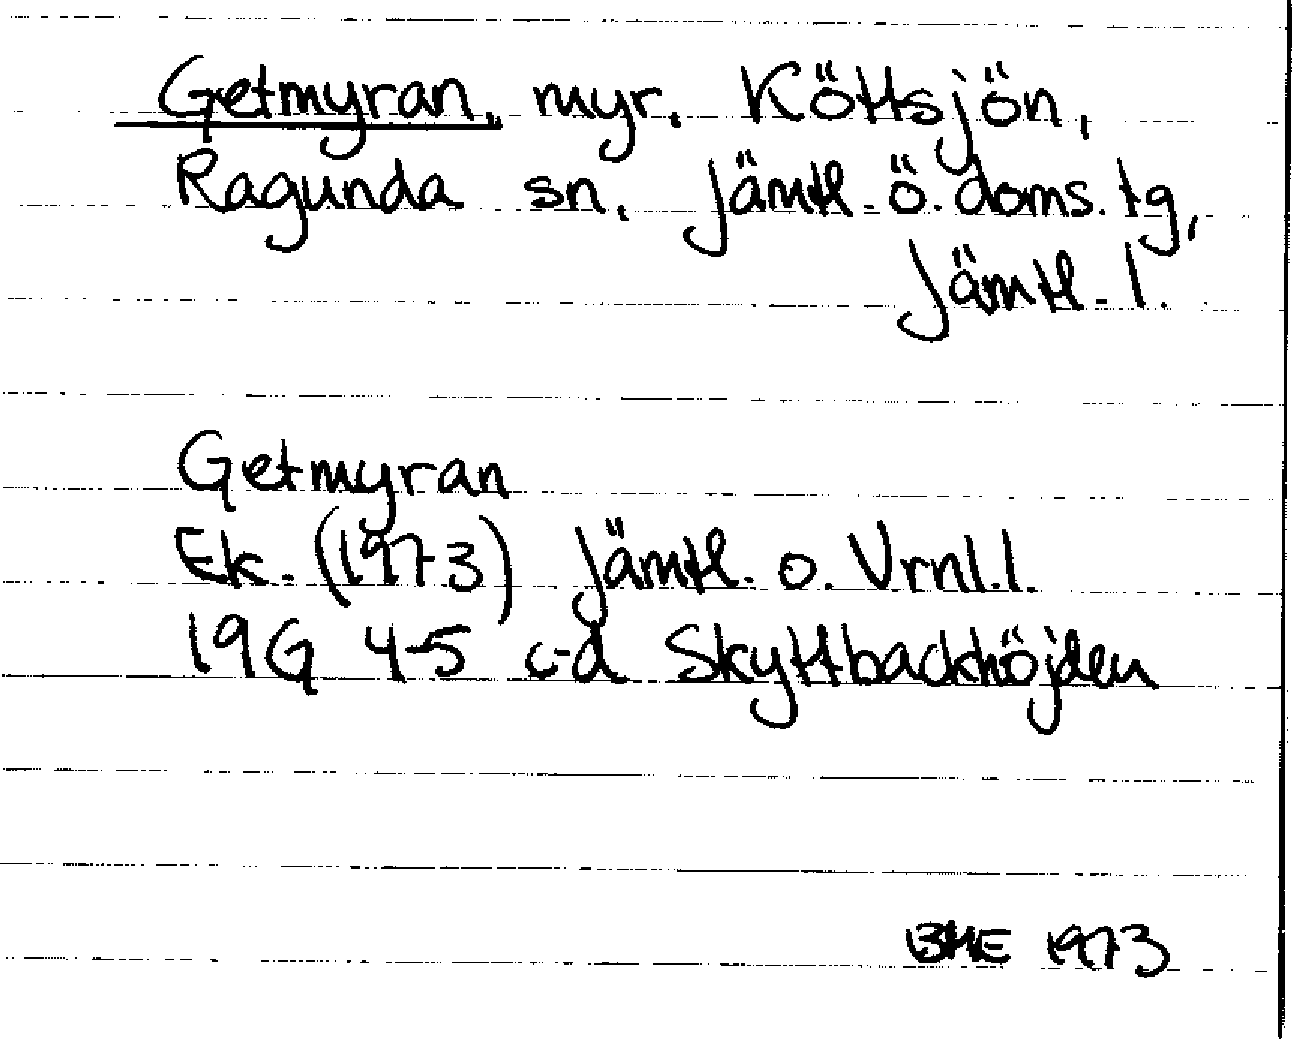 Getmyran, myr. Köttsjön,
Ragunda sn, Jämtl. ö. doms. tg,
Jämtl. l.
Getmyran
Ek. (1973) Jämtl. o. Vrnl. l.
19G 4-5 c-d Skyttbackhöjden
BME 1973